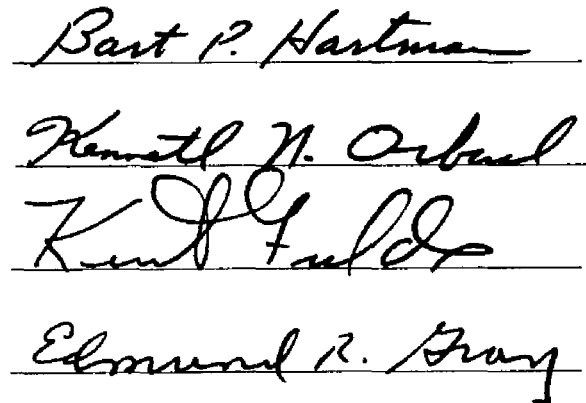 Bart P. Hartman
Kenneth N. Orbach
Kent Fields
Edmund R. Gray